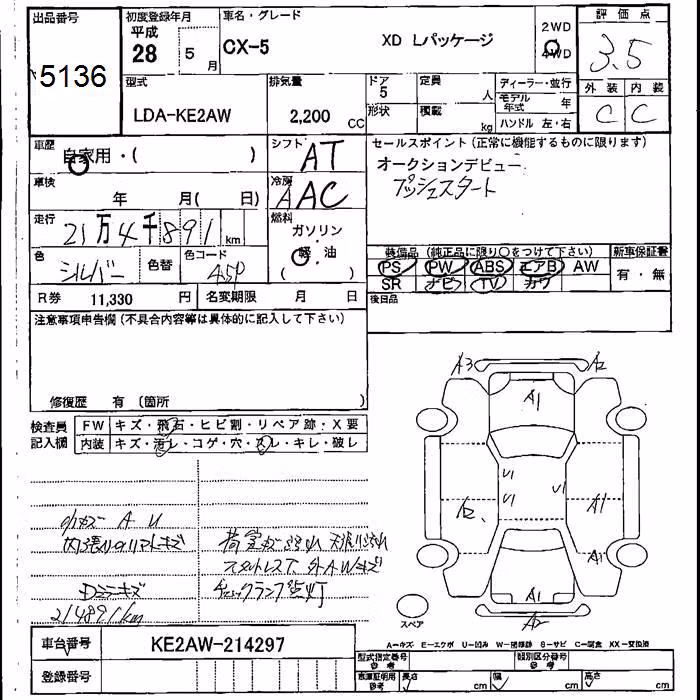 出品番号
5136
初度登録年月
平成
28 5 月
車名・グレード
CX-5 XD Lパッケージ
2WD
4WD
評価点
3.5
外装 内装
C C
型式
LDA-KE2AW
排気量
2,200 CC
ドア
5
形状
定員
人
積載
kg
ディーラー・並行
モデル年式 年
ハンドル 左・右
車歴
自家用・( )
シフト
AT
車検
年 月( 日)
冷房
AAC
走行
21万4千891 km
燃料
ガソリン
・
軽・油
( )
色
シルバー
色替
色コード
45P
R券 11,330 円
名変期限 月 日
セールスポイント(正常に機能するものに限ります)
オークションデビュー
プッシュスタート
装備品(純正品に限り○をつけて下さい)
PS PW ABS エアB AW
SR ナビ TV カワ
新車保証書
有・無
後日品
注意事項申告欄(不具合内容等は具体的に記入して下さい)
修復歴 有(箇所 )
検査員
記入欄
FW キズ・飛石・ヒビ割・リペア跡・X要
内装 キズ・汚レ・コゲ・穴・スレ・キレ・破レ
小キズ A U
Dミラーキズ
214891km
スタットレス 外AWキズ
チェックランプ点灯
A3 A2
A1
U1 U1
U1 U1
A2 A1
A1
A1
A2
スペア
A－キズ E－エクボ U－凹み W－補修跡 S－サビ C－腐食 XX－交換済
車台番号 KE2AW-214297
登録番号
型式指定番号
参考
類別区分番号
参考
車庫証明用
参考
長さ cm
幅 cm
高さ cm